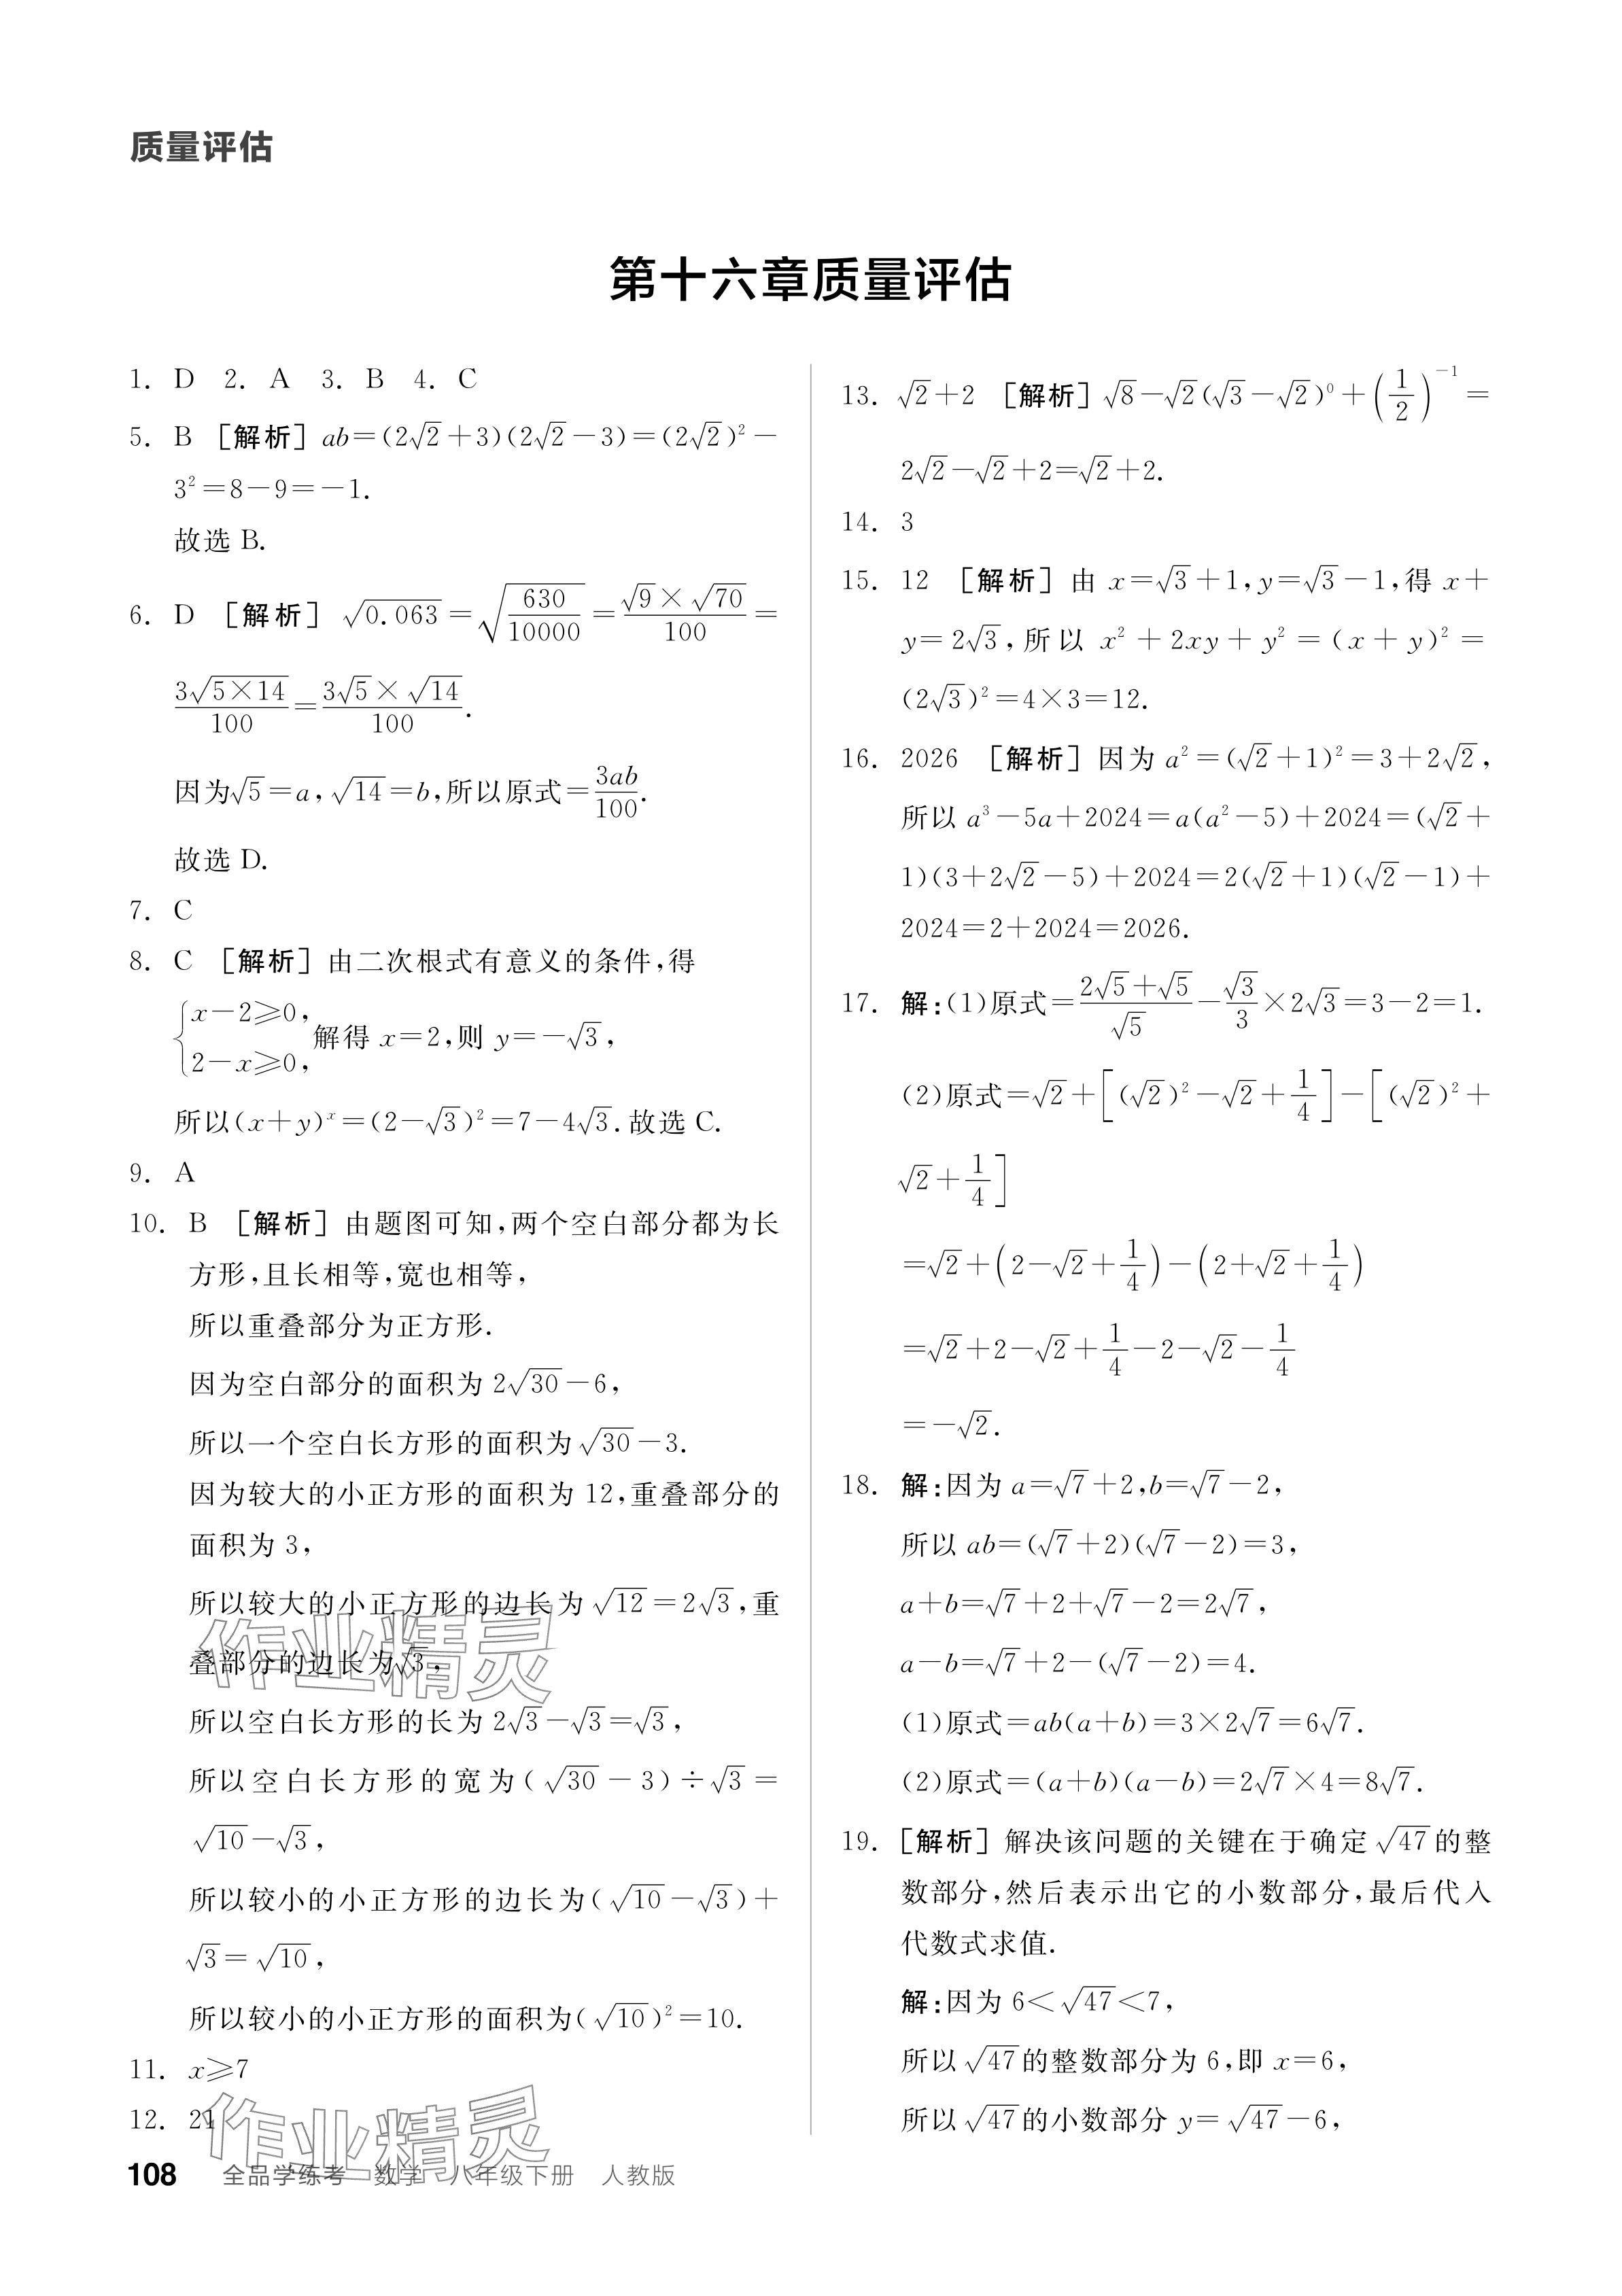 质量评估
第十六章质量评估
1. D 2. A 3. B 4. C
5. B [解析] ab=(2√2+3)(2√2-3)=(2√2)²-
3²=8-9=-1.
故选 B.
6. D [解析] √0.063=√(630/10000)=(√9×√70)/100=
(3√(5×14))/100=(3√5×√14)/100.
因为√5=a,√14=b,所以原式=3ab/100.
故选 D.
7. C
8. C [解析] 由二次根式有意义的条件,得
{x-2≥0,
2-x≥0, 解得 x=2,则 y=-√3,
所以(x+y)ˣ=(2-√3)²=7-4√3.故选 C.
9. A
10. B [解析] 由题图可知,两个空白部分都为长
方形,且长相等,宽也相等,
所以重叠部分为正方形.
因为空白部分的面积为 2√30-6,
所以一个空白长方形的面积为√30-3.
因为较大的小正方形的面积为 12,重叠部分的
面积为 3,
所以较大的小正方形的边长为√12=2√3,重
叠部分的边长为√3,
所以空白长方形的长为 2√3-√3=√3,
所以空白长方形的宽为(√30-3)÷√3=
√10-√3,
所以较小的小正方形的边长为(√10-√3)+
√3=√10,
所以较小的小正方形的面积为(√10)²=10.
11. x≥7
12. 21
13. √2+2 [解析] √8-√2(√3-√2)⁰+(1/2)⁻¹=
2√2-√2+2=√2+2.
14. 3
15. 12 [解析] 由 x=√3+1,y=√3-1,得 x+
y=2√3,所以 x²+2xy+y²=(x+y)²=
(2√3)²=4×3=12.
16. 2026 [解析] 因为 a²=(√2+1)²=3+2√2,
所以 a³-5a+2024=a(a²-5)+2024=(√2+
1)(3+2√2-5)+2024=2(√2+1)(√2-1)+
2024=2+2024=2026.
17. 解:(1)原式=(2√5+√5)/√5-√3/3×2√3=3-2=1.
(2)原式=√2+[(√2)²-√2+1/4]-[(√2)²+
√2+1/4]
=√2+(2-√2+1/4)-(2+√2+1/4)
=√2+2-√2+1/4-2-√2-1/4
=-√2.
18. 解:因为 a=√7+2,b=√7-2,
所以 ab=(√7+2)(√7-2)=3,
a+b=√7+2+√7-2=2√7,
a-b=√7+2-(√7-2)=4.
(1)原式=ab(a+b)=3×2√7=6√7.
(2)原式=(a+b)(a-b)=2√7×4=8√7.
19. [解析] 解决该问题的关键在于确定√47的整
数部分,然后表示出它的小数部分,最后代入
代数式求值.
解:因为 6<√47<7,
所以√47的整数部分为 6,即 x=6,
所以√47的小数部分 y=√47-6,
作业精灵
作业精灵
108 全品学练考 数学 八年级下册 人教版